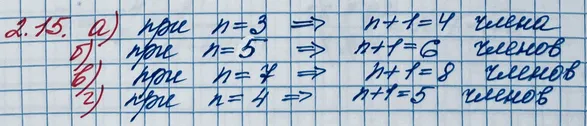 2.15. а) при n=3 => n+1=4 члена
б) при n=5 => n+1=6 членов
в) при n=7 => n+1=8 членов
г) при n=4 => n+1=5 членов